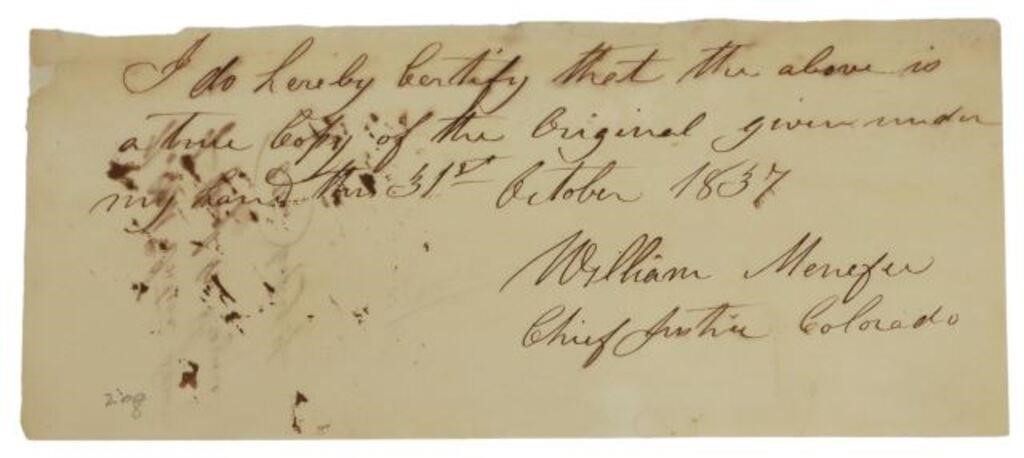 I do hereby Certify that the above is
a true Copy of the Original given under
my hand this 31st October 1837
William Menefee
Chief Justice Colorado